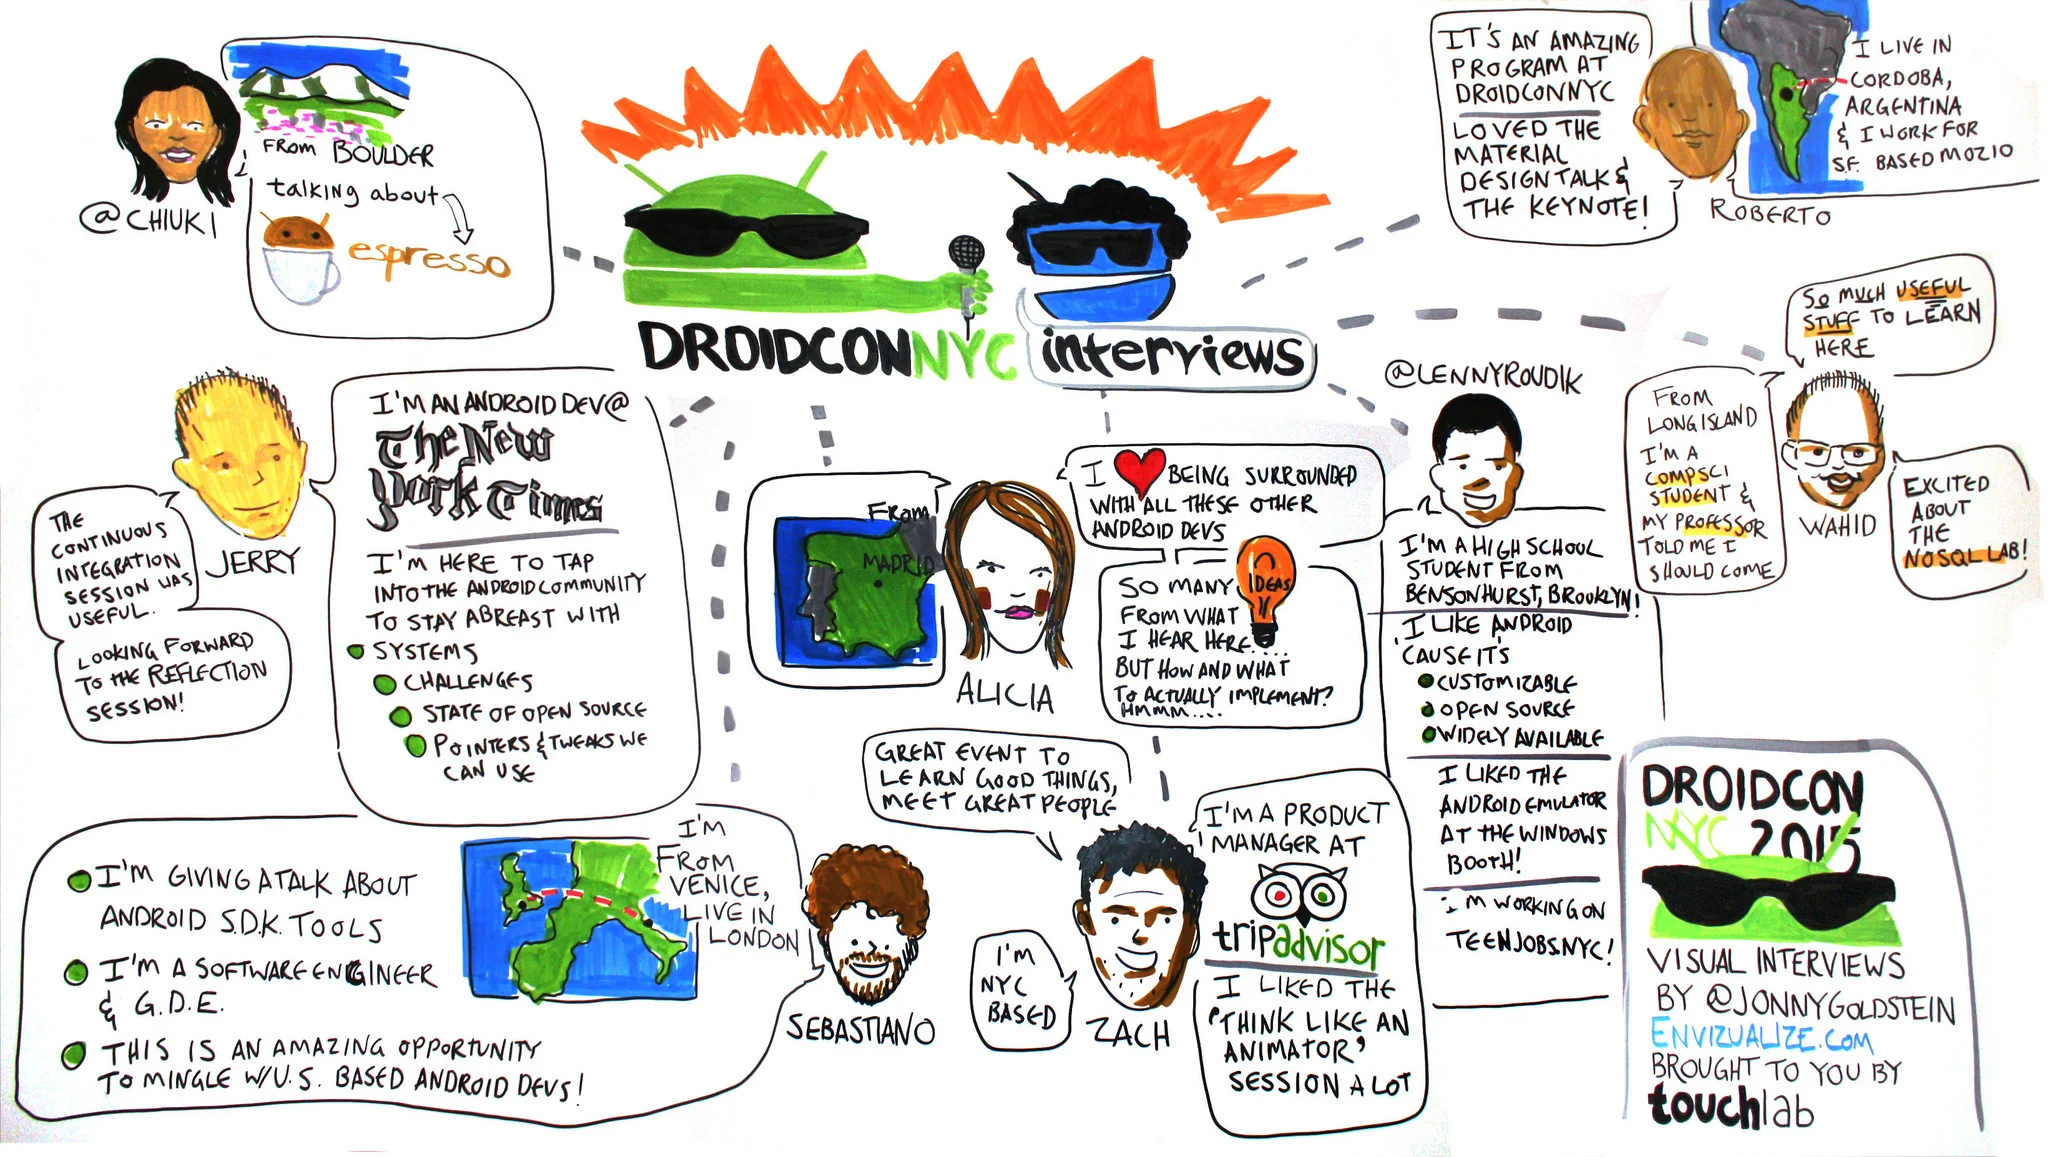 @CHIUKI
FROM BOULDER
talking about
espresso
DROIDCONNYC
interviews
IT'S AN AMAZING
PROGRAM AT
DROIDCONNYC
LOVED THE
MATERIAL
DESIGN TALK &
THE KEYNOTE!
ROBERTO
I LIVE IN
CORDOBA,
ARGENTINA
& I WORK FOR
S.F. BASED MOZIO
SO MUCH USEFUL
STUFF TO LEARN
HERE
FROM
LONG ISLAND
I'M A
COMPSCI
STUDENT &
MY PROFESSOR
TOLD ME I
SHOULD COME
WAHID
EXCITED
ABOUT
THE
NOSQL LAB!
JERRY
I'M AN ANDROID DEV @
The New
York Times
I'M HERE TO TAP
INTO THE ANDROID COMMUNITY
TO STAY ABREAST WITH
SYSTEMS
CHALLENGES
STATE OF OPEN SOURCE
POINTERS & TWEAKS WE
CAN USE
THE
CONTINUOUS
INTEGRATION
SESSION WAS
USEFUL.
LOOKING FORWARD
TO THE REFLECTION
SESSION!
FROM
MADRID
ALICIA
I BEING SURROUNDED
WITH ALL THESE OTHER
ANDROID DEVS
SO MANY IDEAS
FROM WHAT
I HEAR HERE....
BUT HOW AND WHAT
TO ACTUALLY IMPLEMENT?
HMMM....
@LENNYROUDIK
I'M A HIGH SCHOOL
STUDENT FROM
BENSONHURST, BROOKLYN!
I LIKE ANDROID
'CAUSE IT'S
CUSTOMIZABLE
OPEN SOURCE
WIDELY AVAILABLE
I LIKED THE
ANDROID EMULATOR
AT THE WINDOWS
BOOTH!
I'M WORKING ON
TEENJOBS.NYC!
I'M GIVING A TALK ABOUT
ANDROID S.D.K. TOOLS
I'M A SOFTWARE ENGINEER
& G.D.E.
THIS IS AN AMAZING OPPORTUNITY
TO MINGLE W/U.S. BASED ANDROID DEVS!
I'M
FROM
VENICE,
LIVE IN
LONDON
SEBASTIANO
GREAT EVENT TO
LEARN GOOD THINGS,
MEET GREAT PEOPLE
I'M
NYC
BASED
ZACH
I'M A PRODUCT
MANAGER AT
tripadvisor
I LIKED THE
'THINK LIKE AN
ANIMATOR'
SESSION A LOT
DROIDCON
NYC 2015
VISUAL INTERVIEWS
BY @JONNYGOLDSTEIN
ENVIZUALIZE.COM
BROUGHT TO YOU BY
touchlab